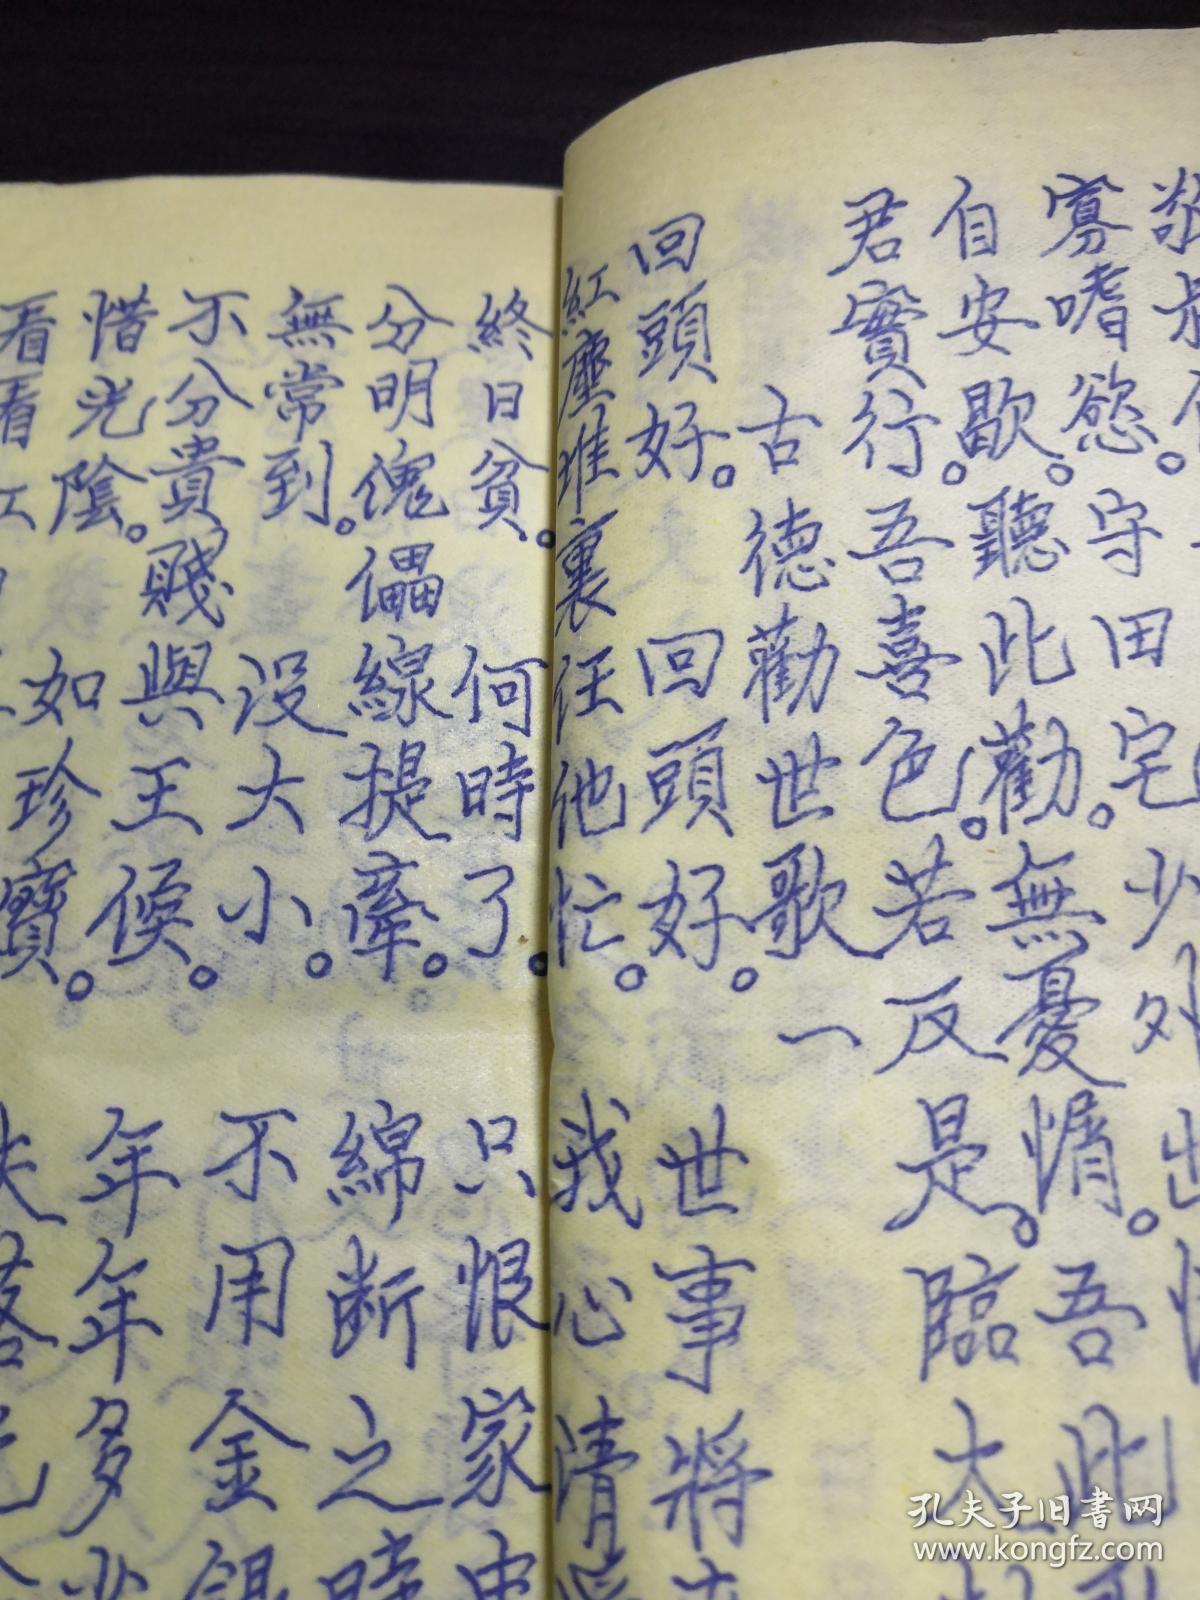 寡嗜慾。守田宅少外出
自安歇。聽此勸。無憂惰。吾此
君實行。吾喜色。若反是。臨大
古德勸世歌一
回頭好。回頭好。世事將
紅塵堆裏任他忙。我心清
終日貧。何時了。只恨家中
分明傀儡線提牽。綿斷之時
無常到。没大小。不用金銀
不分貴賤與王侯。年年多少
惜光陰。如珍寶。
看看
孔夫子旧書网
www.kongfz.com